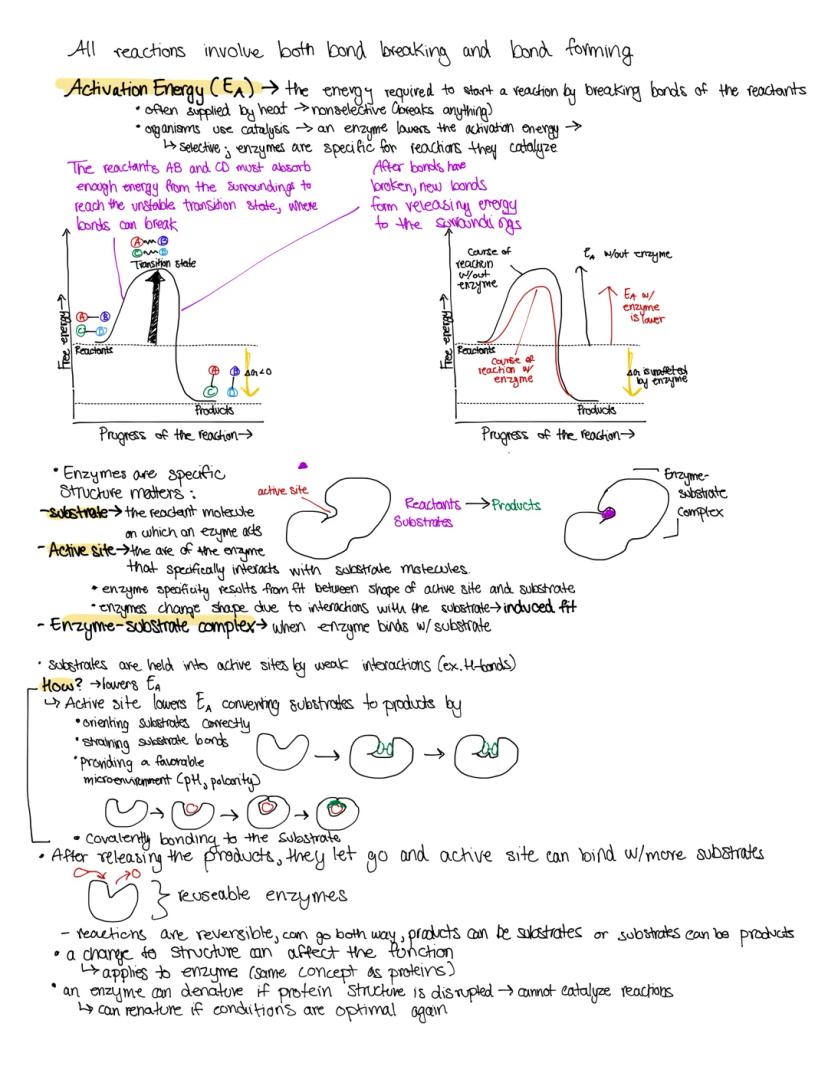 All reactions involve both bond breaking and bond forming
Activation Energy (EA) → the energy required to start a reaction by breaking bonds of the reactants
• often supplied by heat → nonselective (breaks anything)
• organisms use catalysis → an enzyme lowers the activation energy →
↳ selective; enzymes are specific for reactions they catalyze
The reactants AB and CD must absorb
enough energy from the surroundings to
reach the unstable transition state, where
bonds can break
After bonds have
broken, new bonds
form releasing energy
to the surroundings
A B
C D
Transition state
A B
C D
Reactants
Free energy →
A B
C D
ΔG<0
Products
Progress of the reaction →
Course of
reaction
w/out
enzyme
EA w/out enzyme
EA w/
enzyme
is lower
Free energy →
Reactants
course of
reaction w/
enzyme
ΔG is unaffected
by enzyme
Products
Progress of the reaction →
• Enzymes are specific
Structure matters:
- substrate → the reactant molecule
on which an ezyme acts
- Active site → the are of the enzyme
that specifically interacts with substrate molecules.
active site
Reactants → Products
Substrates
Enzyme-
substrate
complex
• enzyme specificity results from fit between shape of active site and substrate
• enzymes change shape due to interactions with the substrate → induced fit
- Enzyme-substrate complex → when enzyme binds w/ substrate
• substrates are held into active sites by weak interactions (ex. H-bonds)
How? → lowers EA
↳ Active site lowers EA converting substrates to products by
• orienting substrates correctly
• straining substrate bonds
• Providing a favorable
microenvironment (pH, polarity)
• Covalently bonding to the substrate
• After releasing the products, they let go and active site can bind w/more substrates
} reuseable enzymes
- reactions are reversible, can go both way, products can be substrates or substrates can be products
• a change to structure can affect the function
↳ applies to enzyme (same concept as proteins)
• an enzyme can denature if protein structure is disrupted → cannot catalyze reactions
↳ can renature if conditions are optimal again